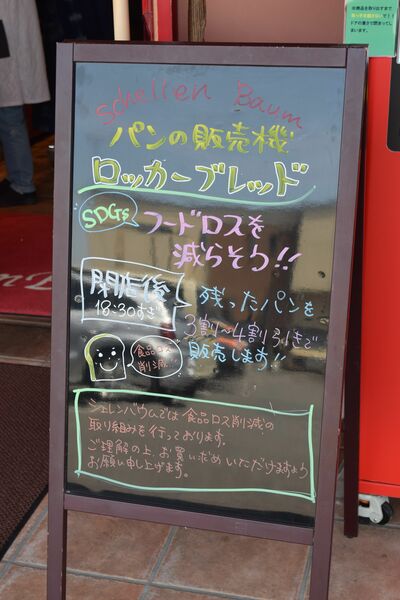 Schellen Baum
パンの販売機
ロッカーブレッド
SDGs
フードロスを
減らそう!!
閉店後
18:30すぎ
残ったパンを
3割〜4割引きで
販売します!!
食品ロス
削減
シェレンバウムでは食品ロス削減の
取り組みを行っております。
ご理解の上、お買い求めいただけますよう
お願い申し上げます。